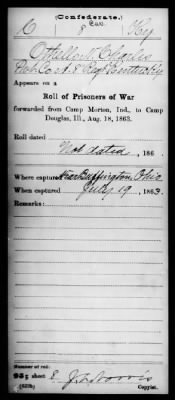 (Confederate.)
C 8 Cav. Ky
Charles
Appears on a
Roll of Prisoners of War
forwarded from Camp Morton, Ind., to Camp
Douglas, Ill., Aug. 18, 1863.
Roll dated
Not dated, 186 .
Where captured Near Buffington, Ohio
When captured July 19, 1863.
Remarks:
Number of roll:
sheet E J. L. Norris
Copyist.